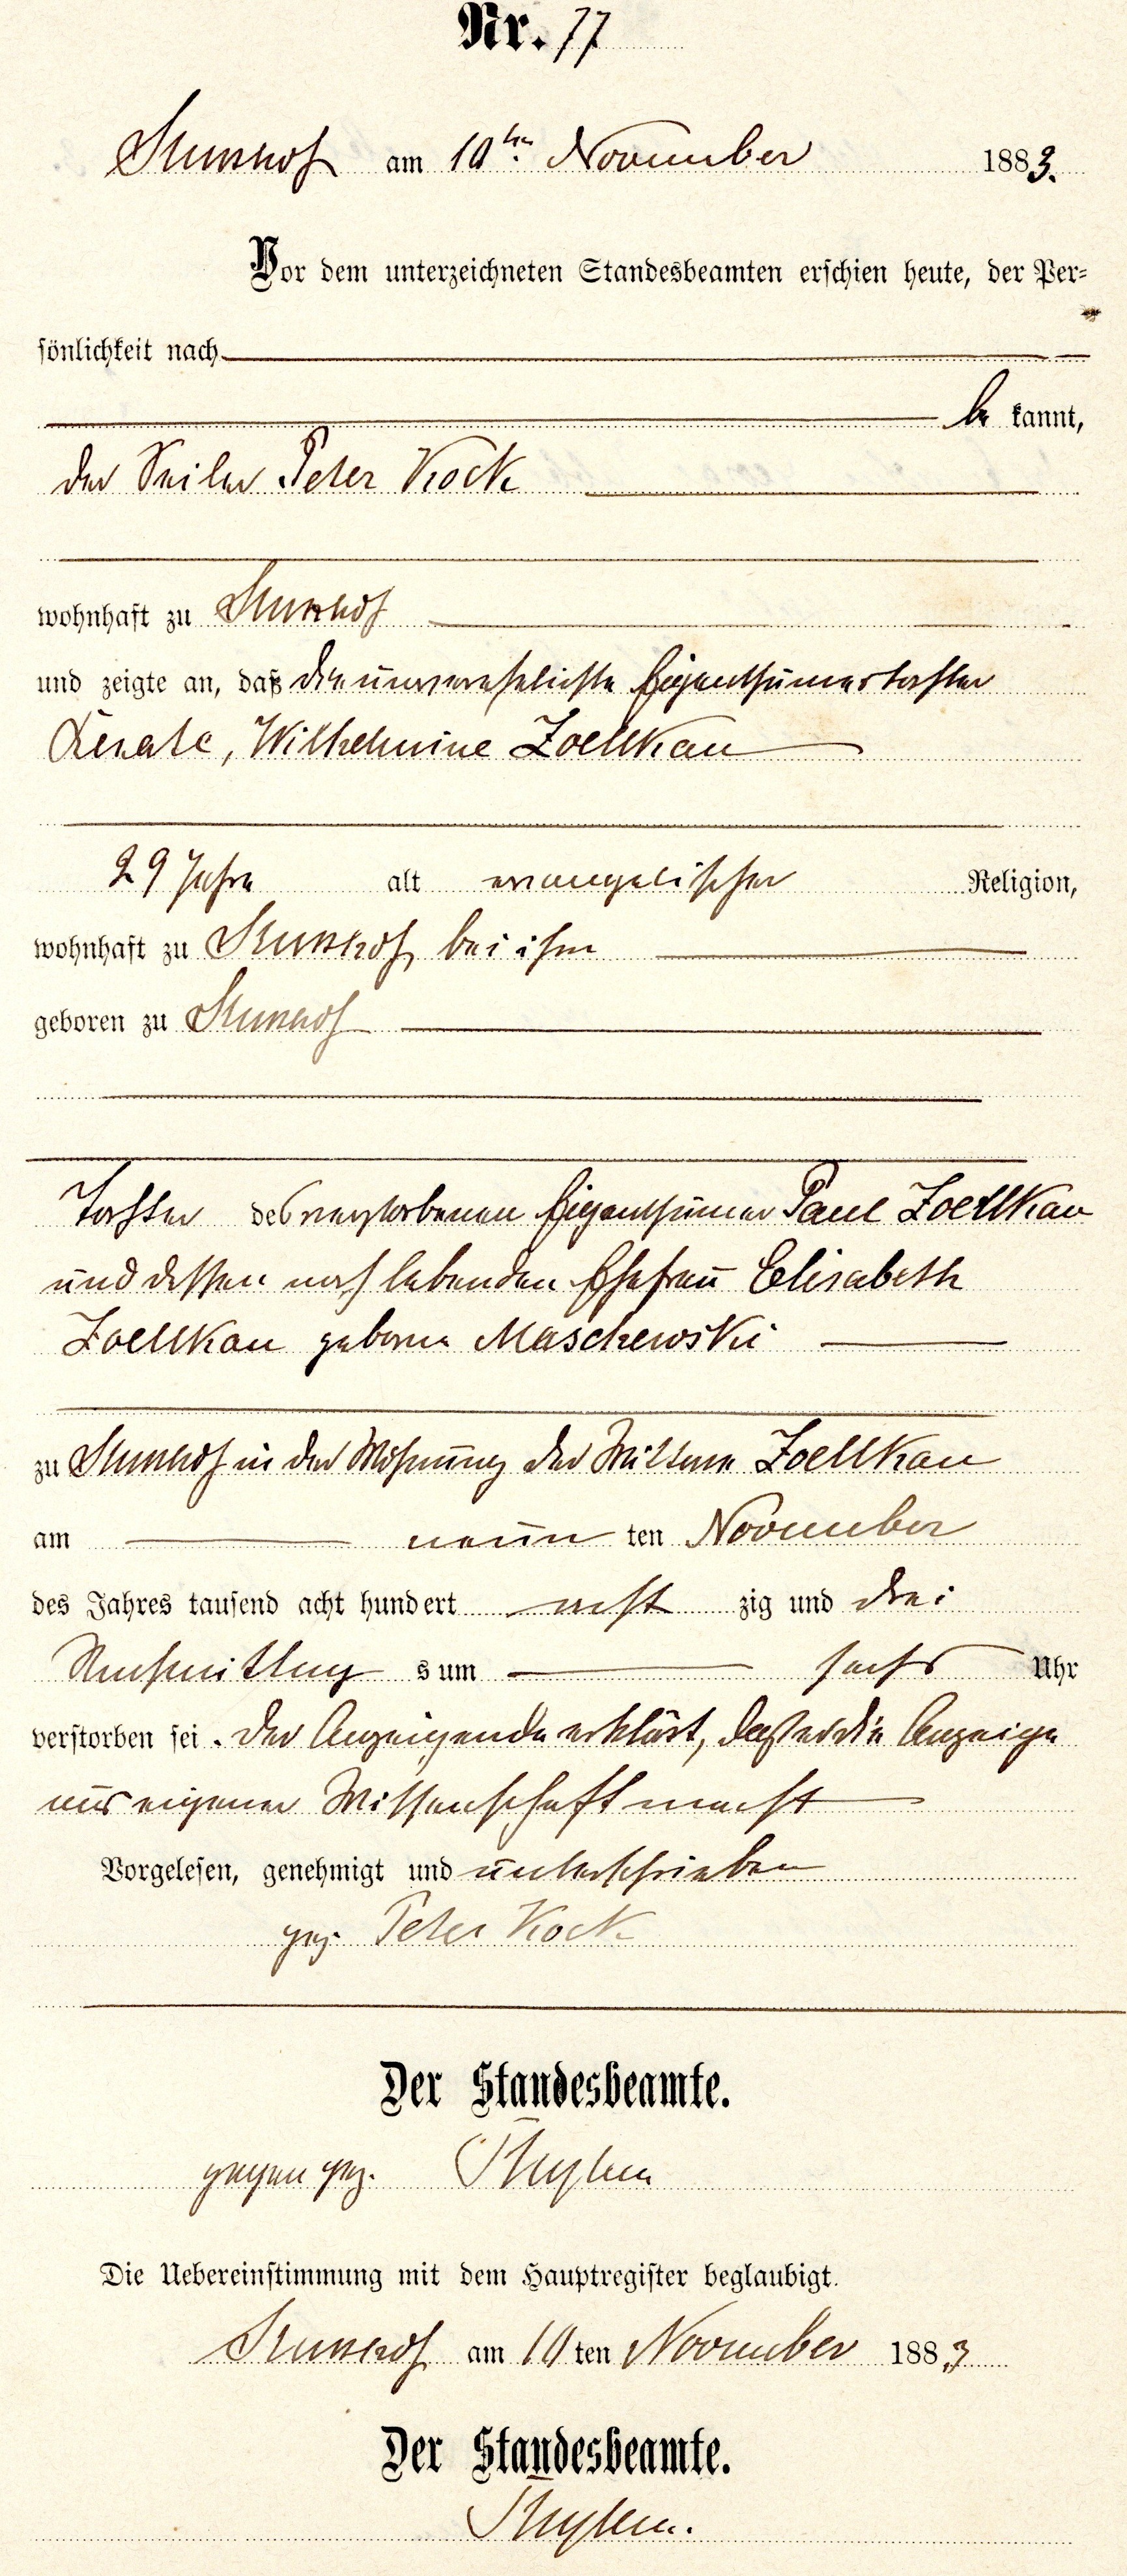 Nr. 77
Stutthof am 10ten November 1883.
Vor dem unterzeichneten Standesbeamten erschien heute, der Per-
sönlichkeit nach
be kannt,
der Seiler Peter Kock
wohnhaft zu Stutthof
und zeigte an, daß die unverehelichte Eigenthümertochter
Renate, Wilhelmine Zoellkau
29 Jahre alt evangelischer Religion,
wohnhaft zu Stutthof, bei ihm
geboren zu Stutthof
Tochter des verstorbenen Eigenthümer Paul Zoellkau
und dessen noch lebenden Ehefrau Elisabeth
Zoellkau geborne Maschewski
zu Stutthof in der Wohnung der Wittwe Zoellkau
am neun ten November
des Jahres tausend acht hundert acht zig und drei
Nachmittags um sechs Uhr
verstorben sei. Der Anzeigende erklärt, daß er die Anzeige
aus eigener Wissenschaft macht
Vorgelesen, genehmigt und unterschrieben
gez. Peter Kock
Der Standesbeamte.
gegen gez.
Die Uebereinstimmung mit dem Hauptregister beglaubigt.
Stutthof am 10 ten November 1883
Der Standesbeamte.